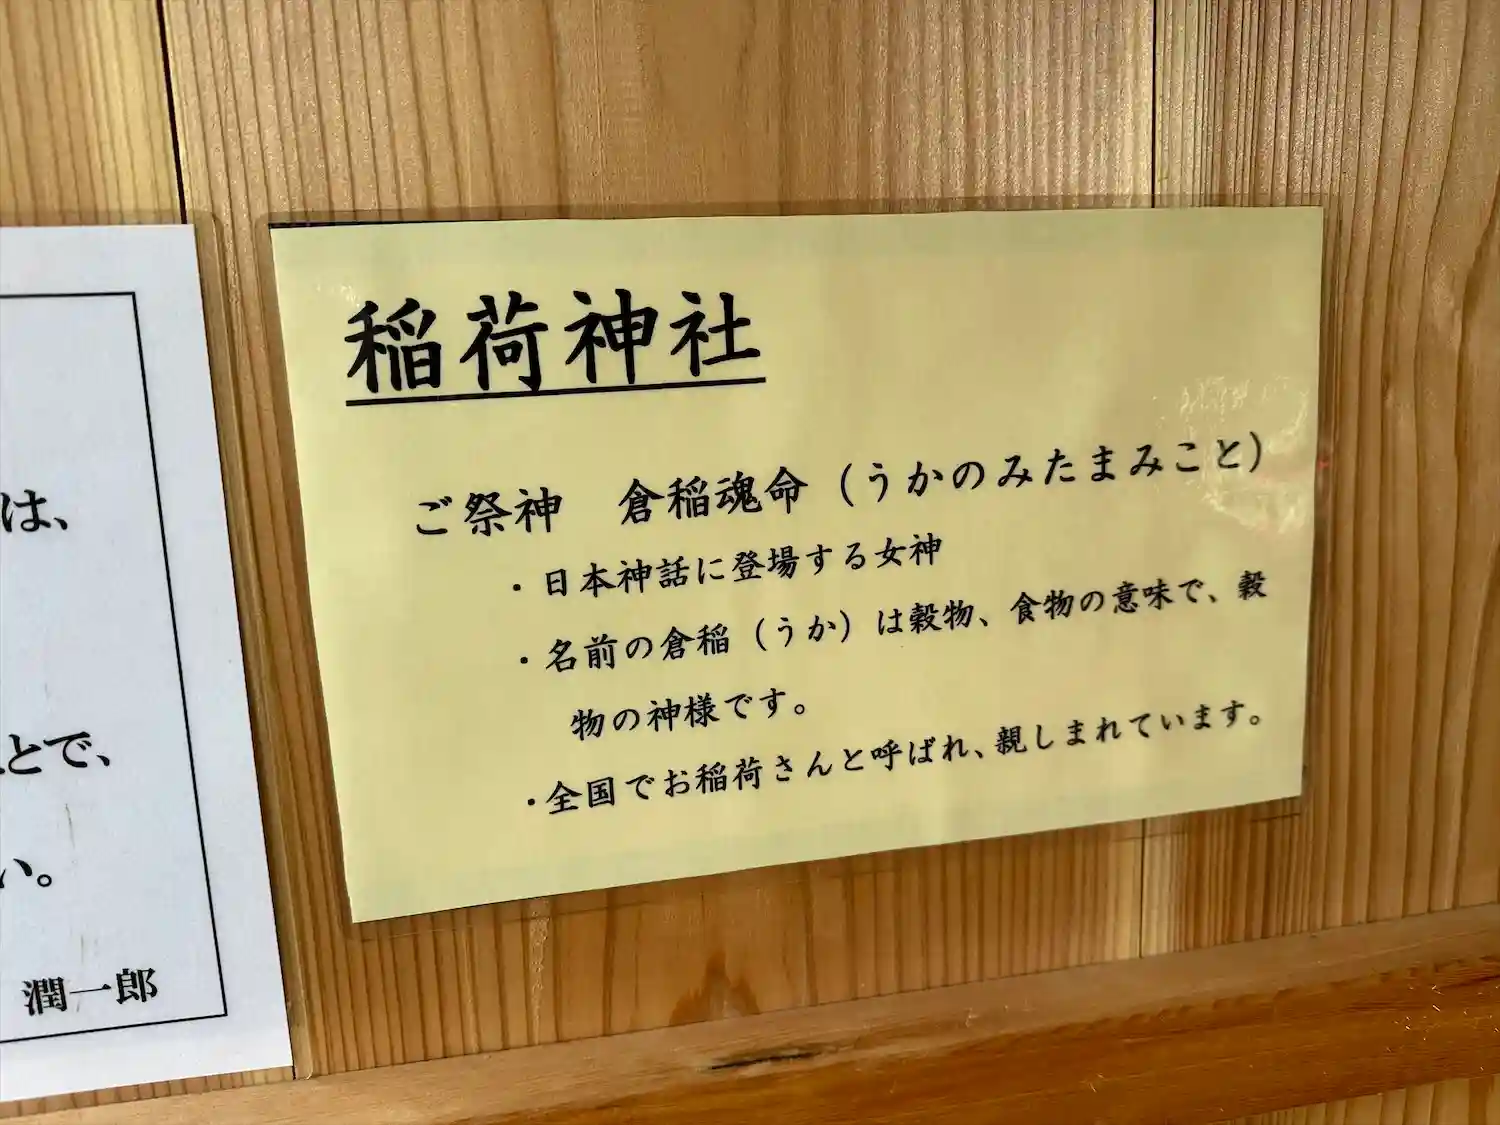 稲荷神社
ご祭神　倉稲魂命（うかのみたまみこと）
・日本神話に登場する女神
・名前の倉稲（うか）は穀物、食物の意味で、穀
物の神様です。
・全国でお稲荷さんと呼ばれ、親しまれています。
は、
とで、
い。
潤一郎